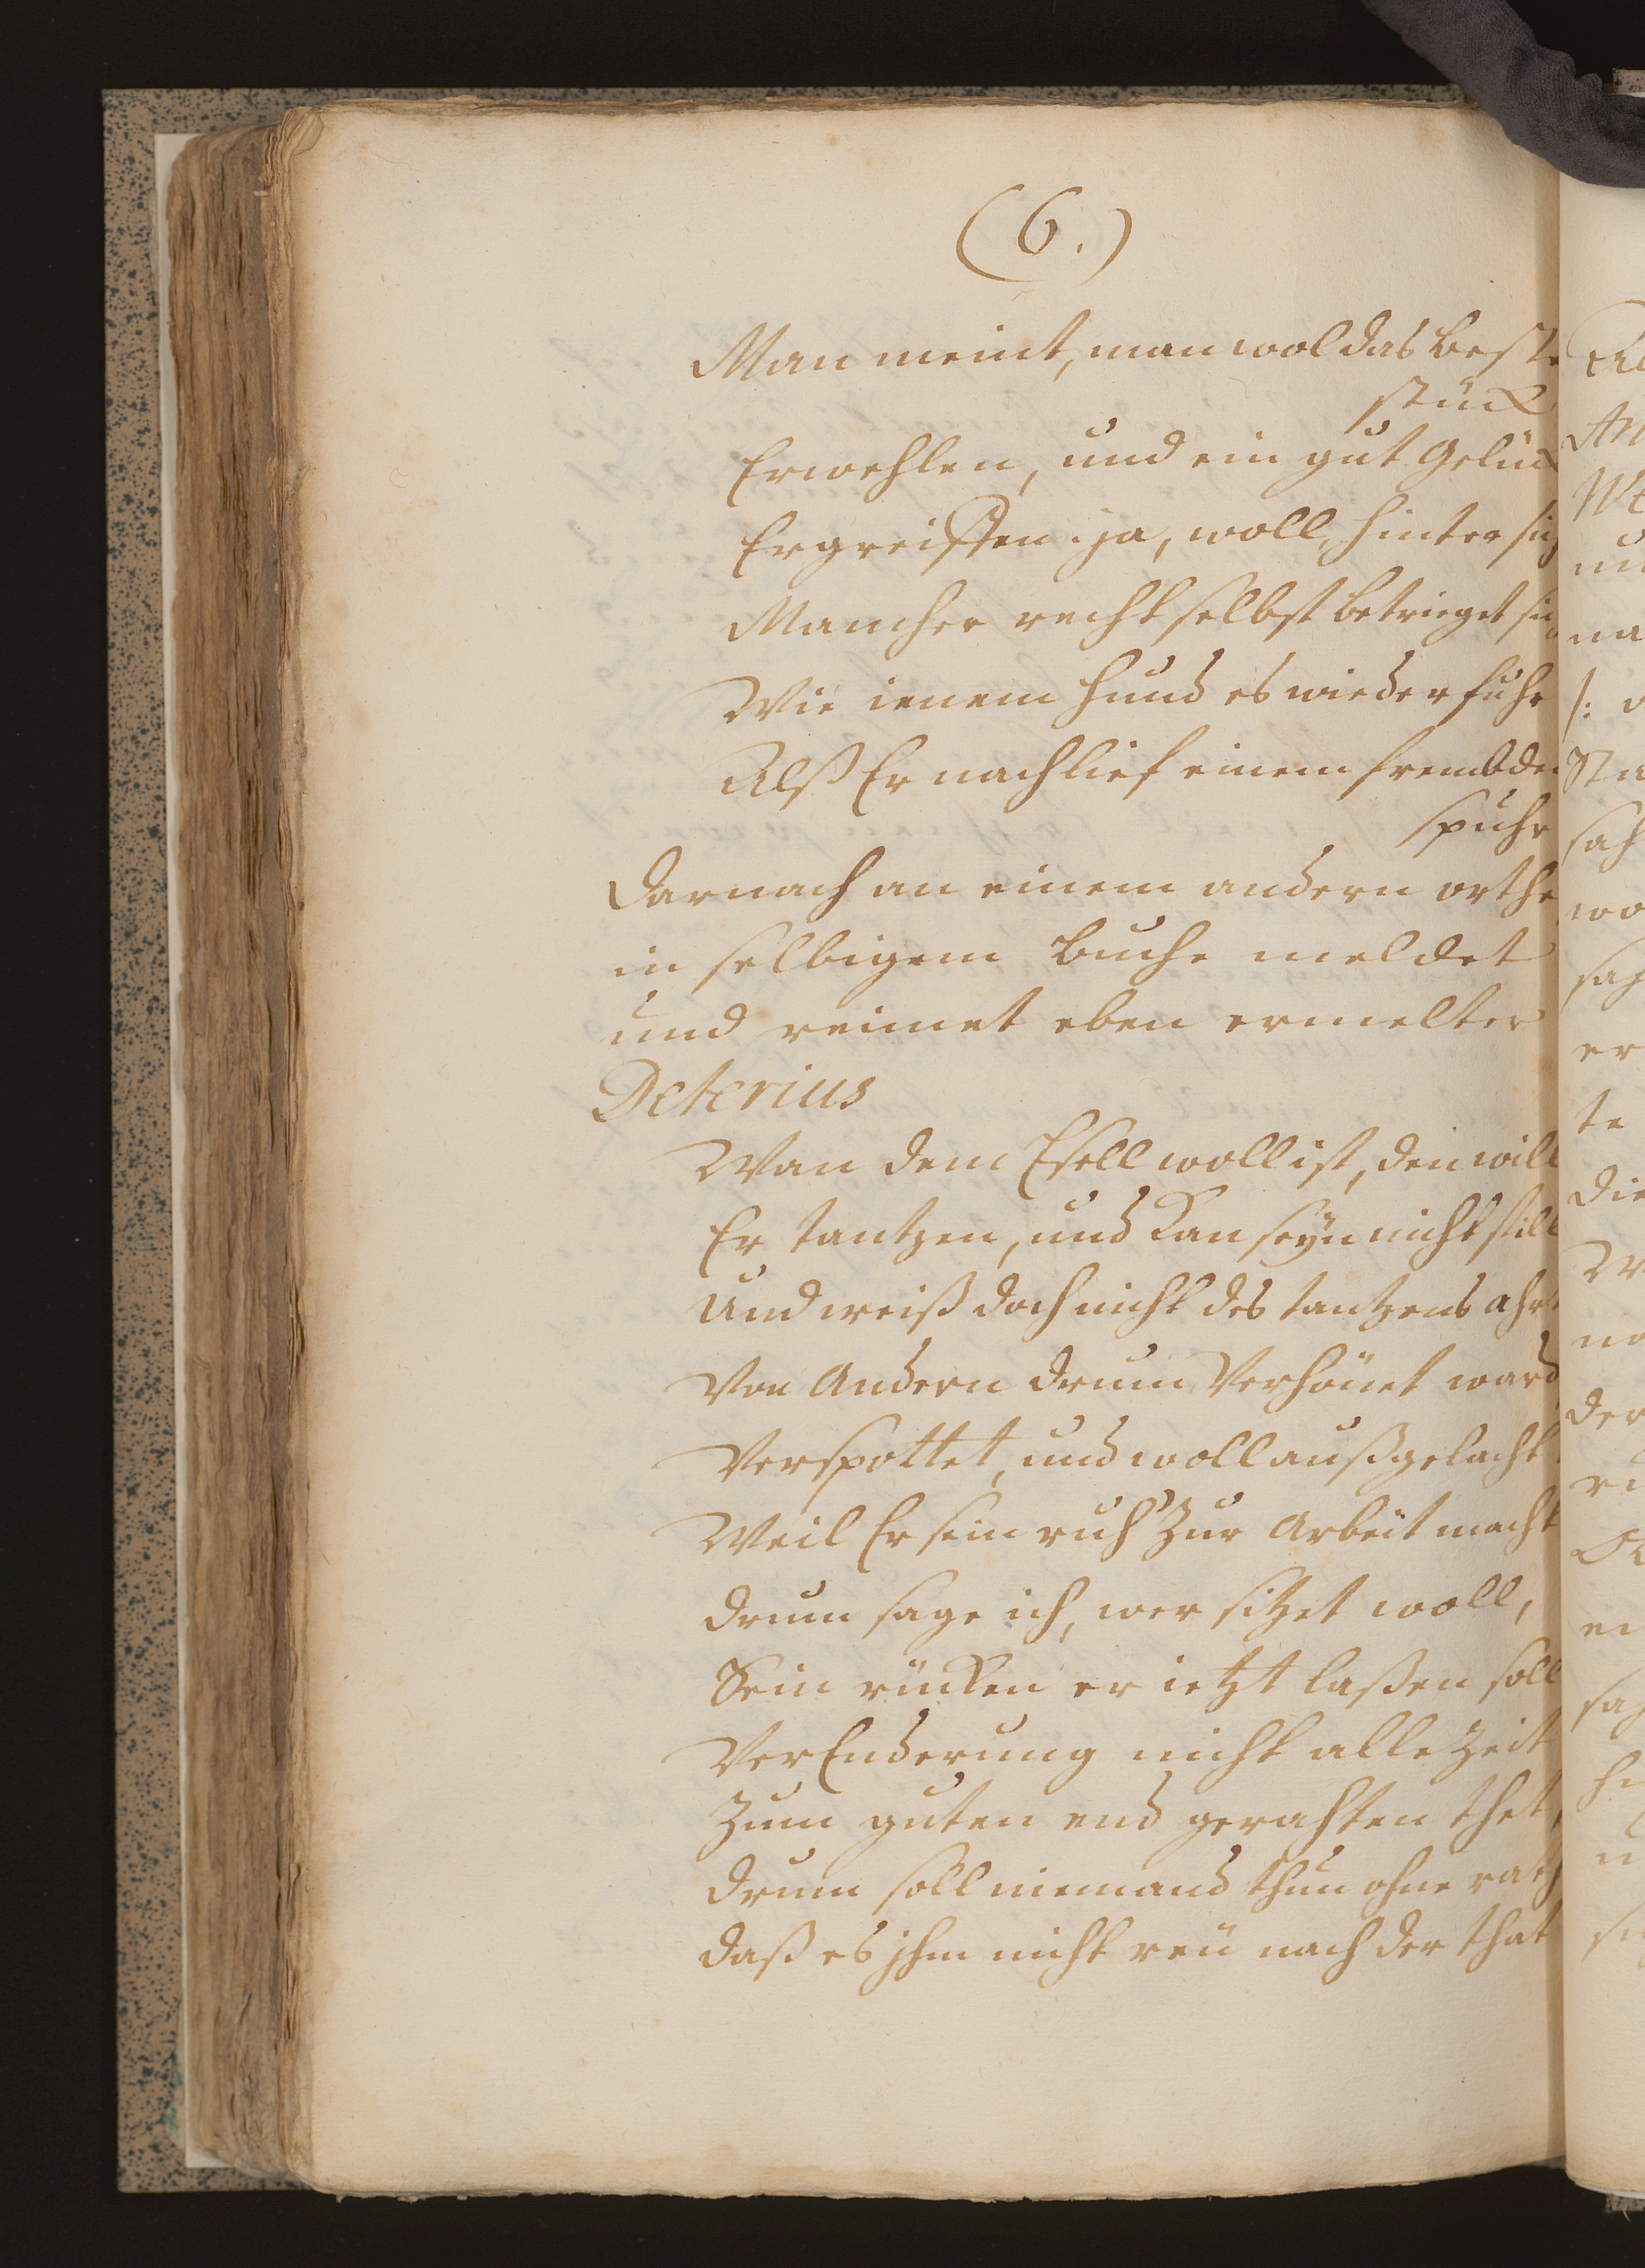 (6.)
Man meint, man wol das beste
stück
Erwehlen, und ein gut Gelück
Ergreiffen. ja, woll, hinter sich
Mancher recht selbst betrieget sich
Wie ienem Hund es wiederfuhr
Alß Er nachlief einem frembden
spuhr
Darnach an einem andern orthe
in selbigem buche meldet
und reimet eben ermelter
Deterius
Wan dem Esell woll ist, den will
Er tantzen, und kan seyn nicht still
Und weiß doch nicht des tantzens ahrt
Von Andern drum Verhönet ward
Verspottet, und woll außgelacht.
Weil Er sein ruh Zur Arbeit macht
Drum sage ich, wer sitzet woll,
Sein rücken er ietzt laßen soll
VerEnderung nicht alle Zeit
Zum guten end gerahten thet,
Drum soll niemand thun ohne rath
Daß es jhm nicht reü nach der that